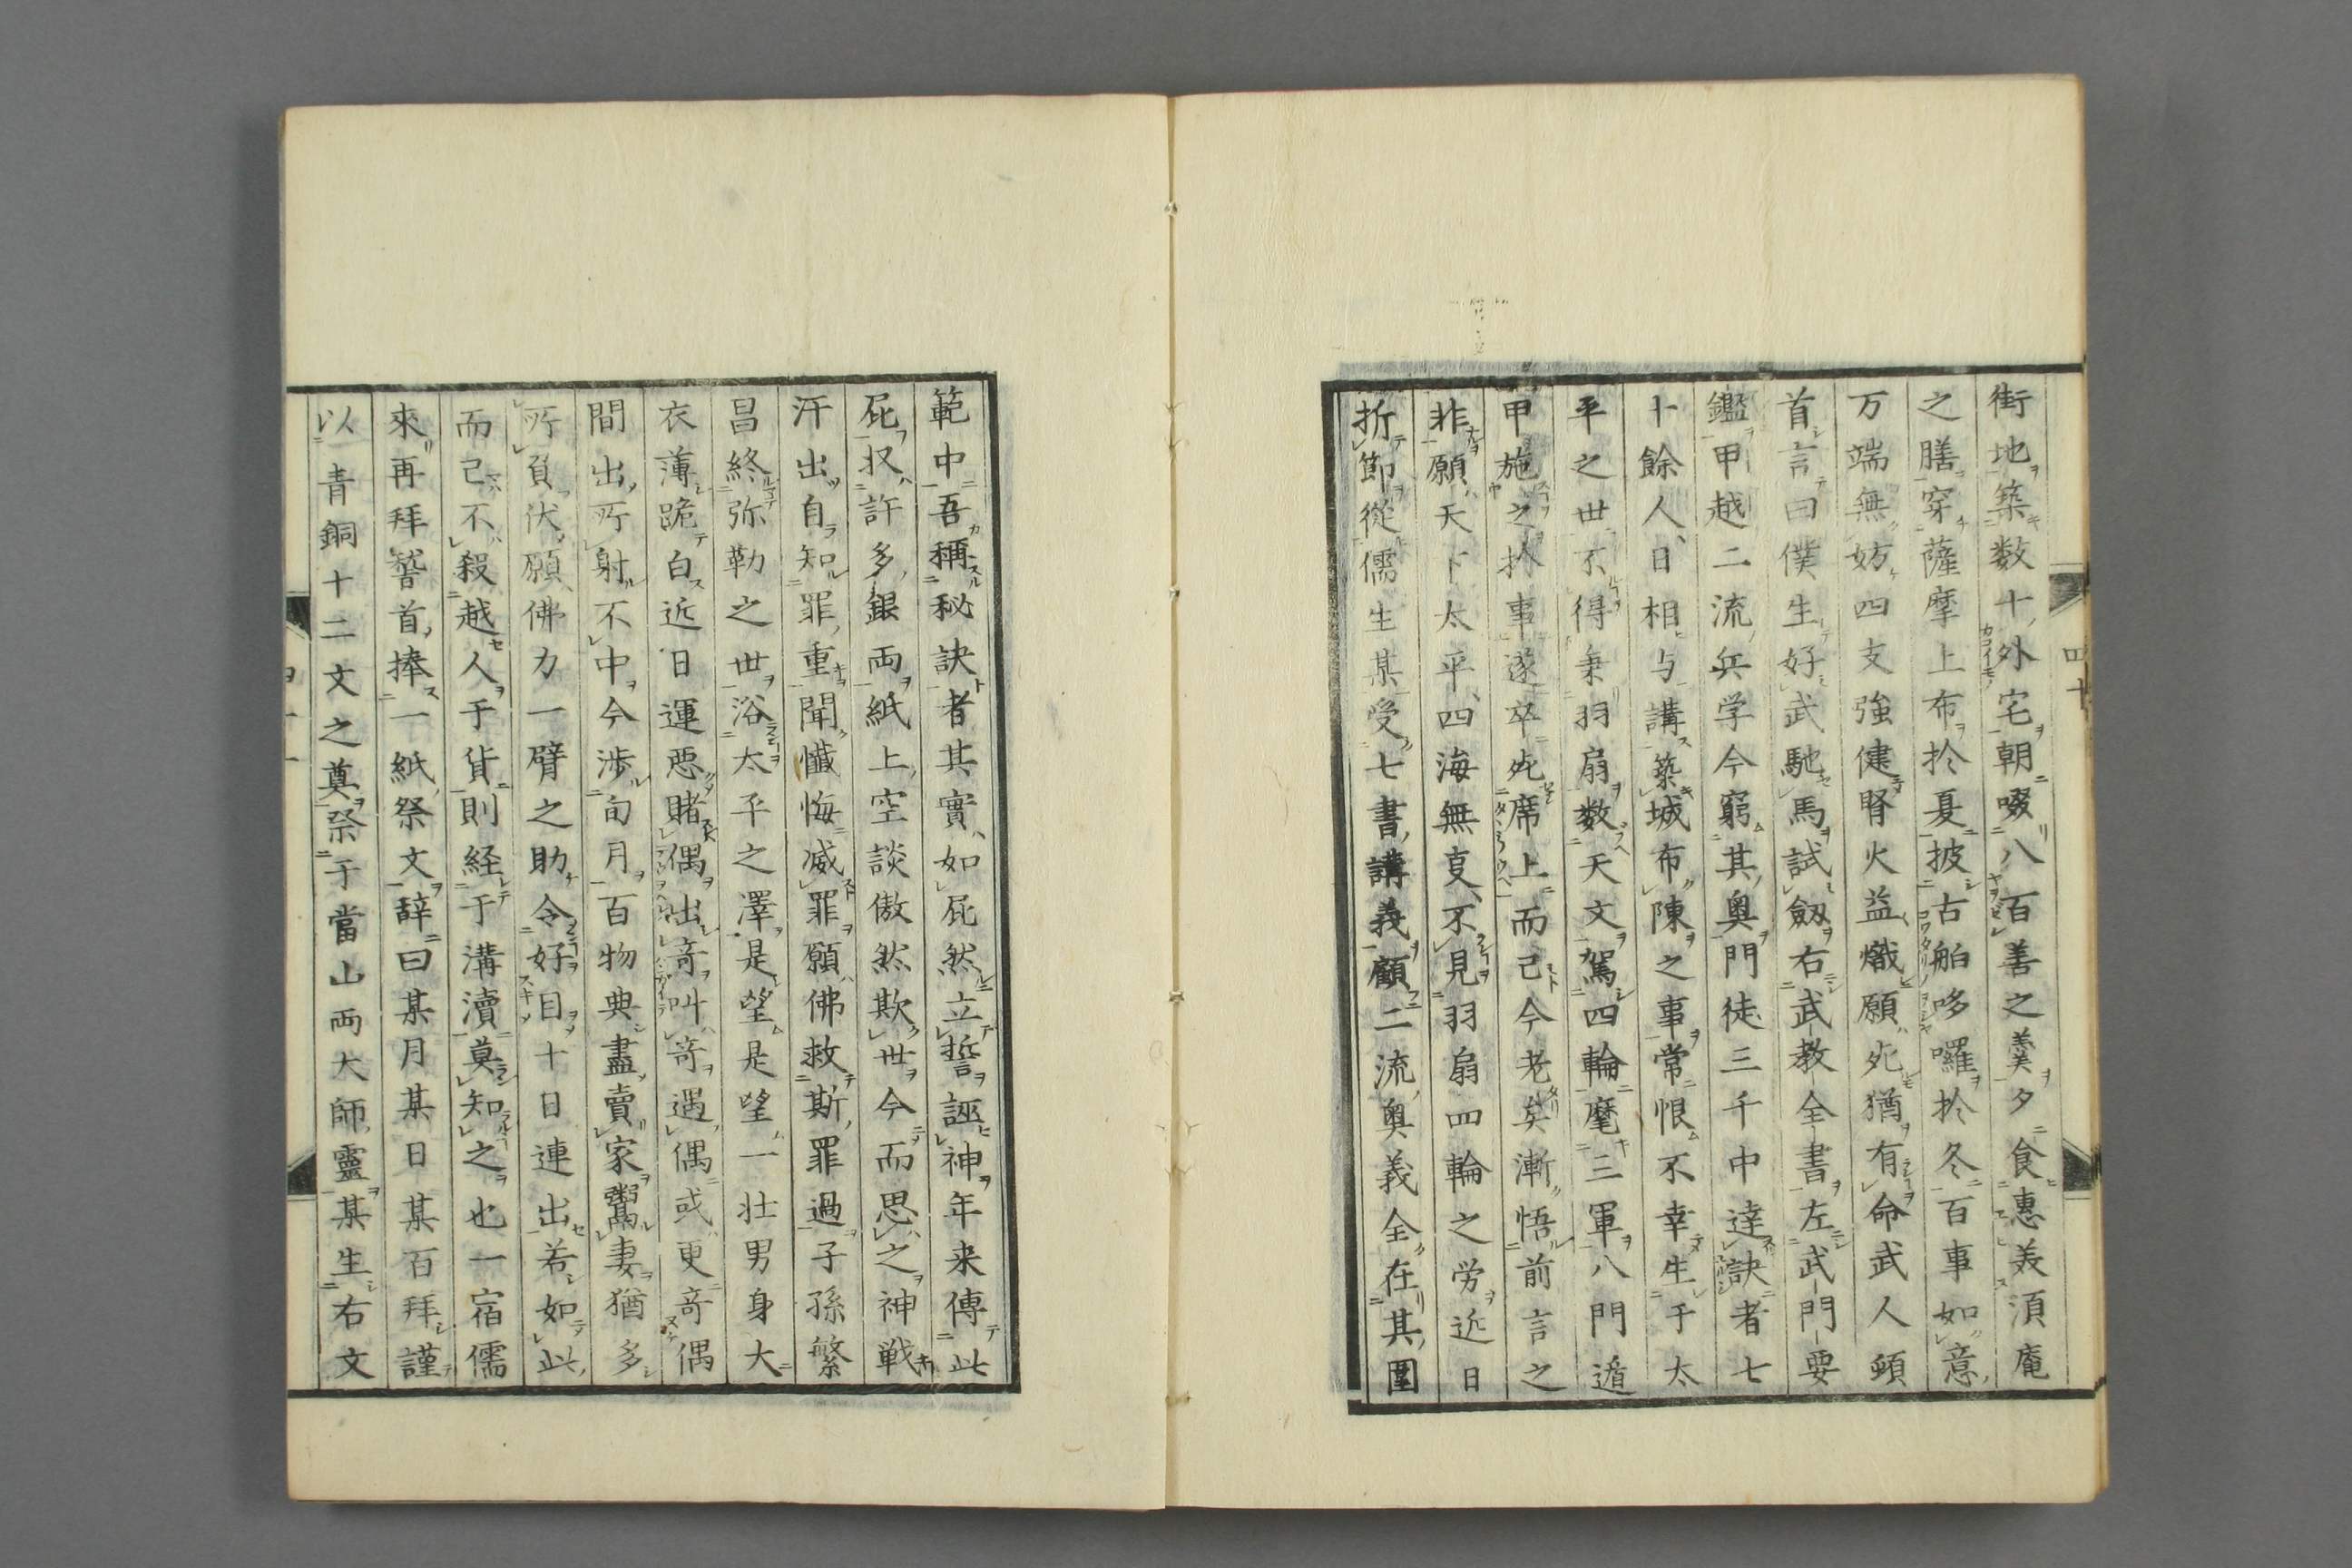 街地築数十外宅朝啜八百善之羹夕食惠美須庵
之膳穿薩摩上布於夏披古舶哆囉於冬百事如意
万端無妨四支強健腎火益熾願死猶有命武人頓
首言曰僕生好武馳馬試劔右武教全書左武門要
鑑甲越二流兵学今窮其奥門徒三千中達訣者七
十餘人日相与講築城布陳之事常恨不幸生于太
平之世不得秉羽扇数天文駕四輪麾三軍八門遁
甲施之於事遂卒死席上而己今老矣漸悟前言之
非願天下太平四海無㕝不見羽扇四輪之労近日
折節從儒生某受七書講義顧二流奥義全在其圍
四十
範中吾稱秘訣者其實如屁然立誓誣神年来傳此
屁収許多銀両紙上空談傲然欺世今而思之神戦
汗出自知罪重聞懺悔滅罪願佛救斯罪過子孫繁
昌終弥勒之世浴太平之澤是望是望一壮男身大
衣薄跪白近日運悪賭偶出竒叫竒遇偶或更竒偶
間出所射不中今渉旬月百物典盡賣家鬻妻猶多
所負伏願佛力一臂之助令好目十日連出若如此
而己不殺越人于貨則経于溝瀆莫知之也一宿儒
來再拜䭫首捧一紙祭文辞曰某月某日某百拜謹
以青銅十二文之奠祭于當山両大師靈某生右文
四十一